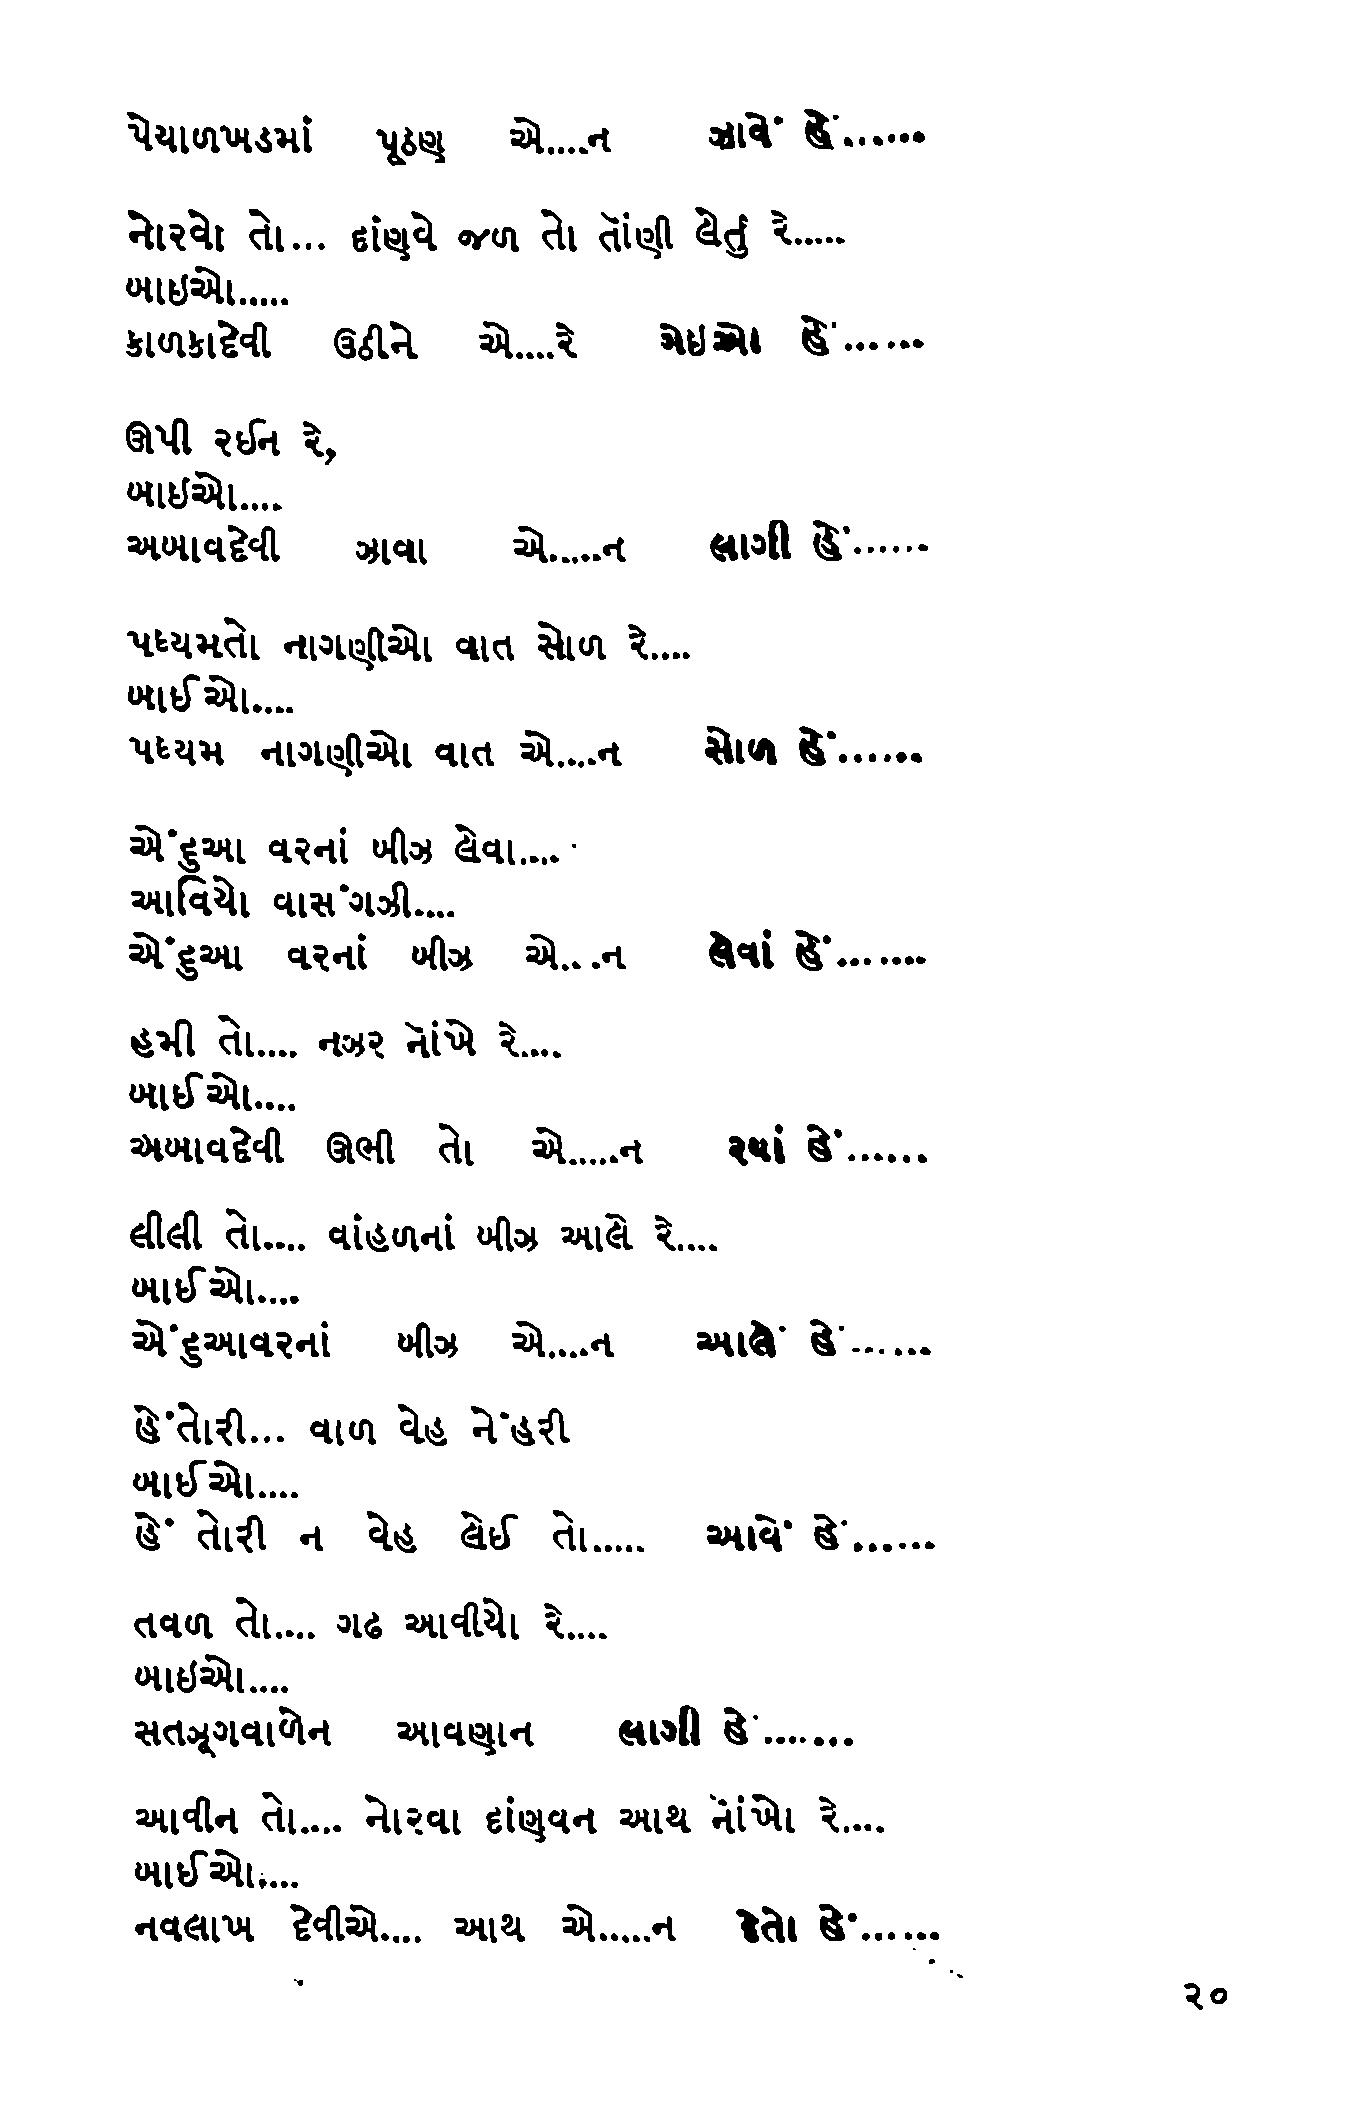 પેયાળખડમાં પૂઠણુ એ....ન ઝાવેં હેં......
નોરવો તો... દાંણવે જળ તો તૉંણી લેર્તુ રે.....
બાઇઓ.....
કાળકાદેવી ઉઠીને એ....રે મેઇઓ હેં......
ઊપી રઈન રે,
બાઇઓ....
અબાવદેવી ઝાવા એ.....ન લાગી હેં......
પધ્યમતો નાગણીઓ વાત સોળ રે....
બાઈઓ....
પધ્યમ નાગણીઓ વાત એ....ન સોળ હેં......
એંદુઆ વરનાં બીઝ લેવા....
આવિયો વાસંગઝી....
એંદુઆ વરનાં બીઝ એ...ન લેવાં હેં.......
હમી તો.... નઝર નૉંખે રે....
બાઈઓ....
અબાવદેવી ઊભી તો એ.....ન રયાં હેં......
લીલી તો.... વાંહળનાં બીઝ આલે રે....
બાઈઓ....
એંદુઆવરનાં બીઝ એ....ન આલેં હેં......
હેંતોરી... વાળ વેહ નેંહરી
બાઈઓ....
હેં તોરી ન વેહ લેઈ તો..... આવેં હેં......
તવળ તો.... ગઢ આવીયો રે....
બાઇઓ....
સતઝૂગવાળેન આવણાન લાગી હેં.......
આવીન તો.... નોરવા દાંણવન આથ નૉંખો રે....
બાઈઓ....
નવલાખ દેવીએ.... આથ એ.....ન દેતો હેં......
૨૦